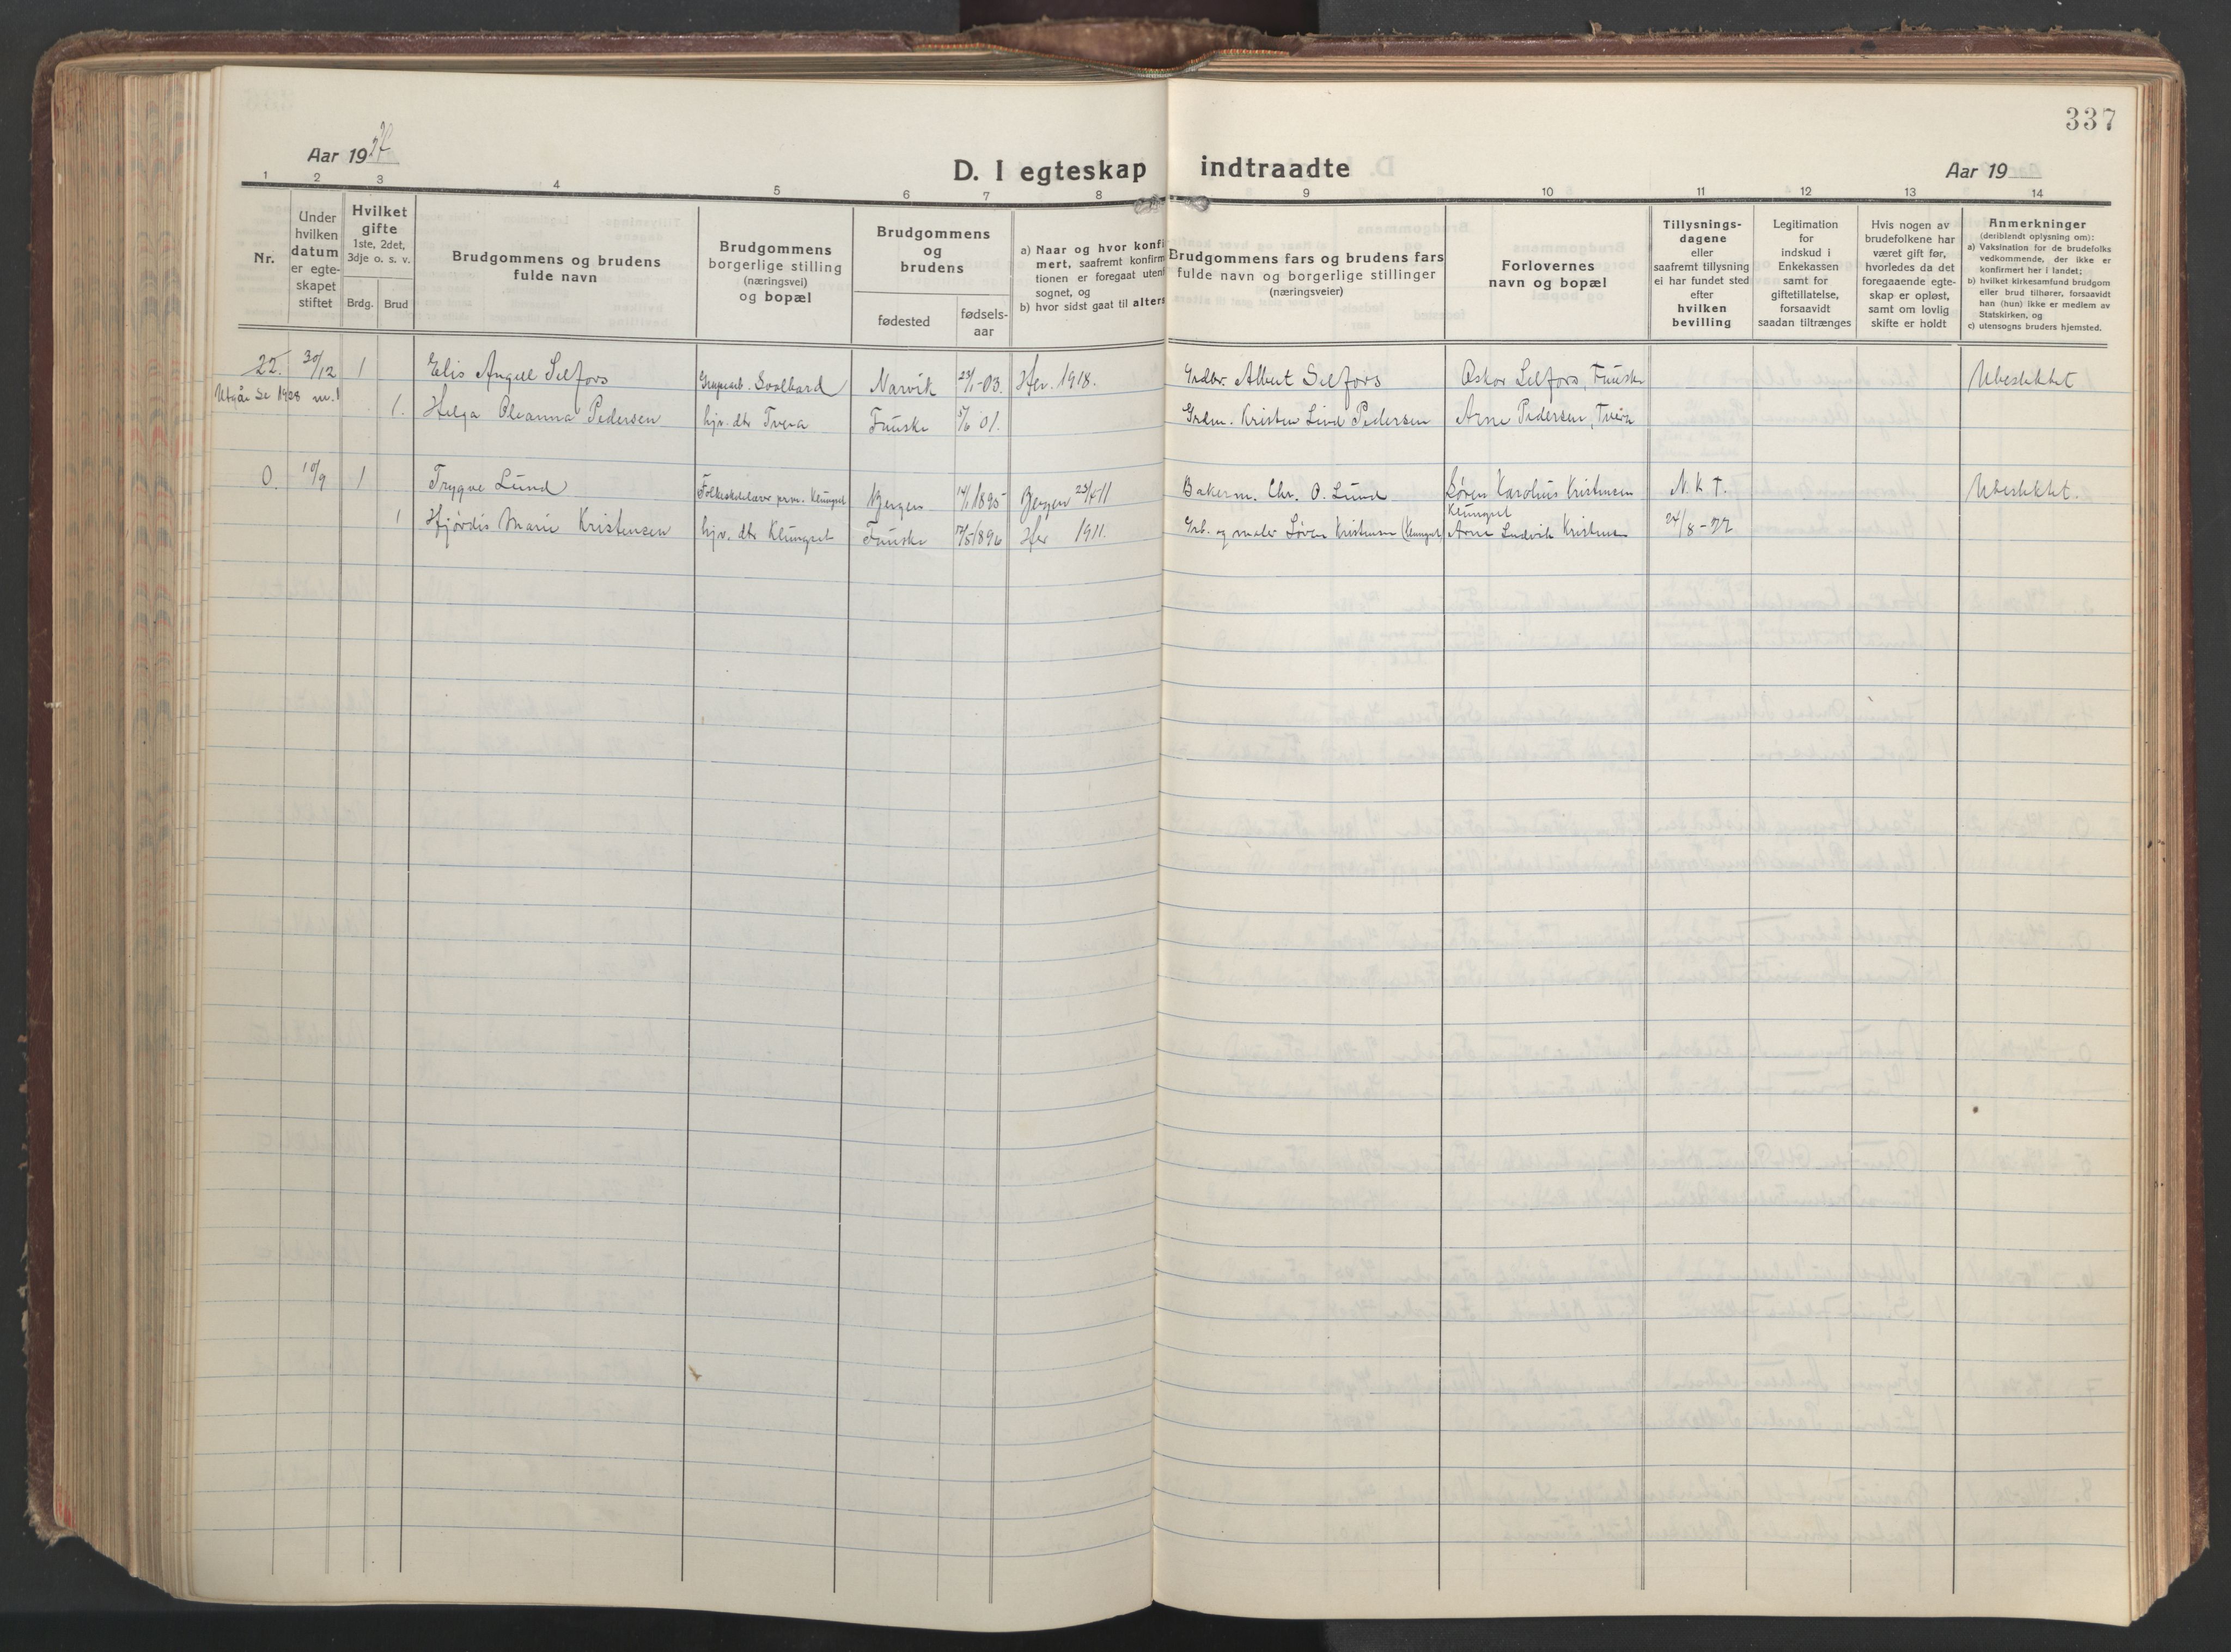 337
Aar 1927
D. I egteskap indtraadte
Aar 19
1 2 3 4 5 6 7 8 9 10 11 12 13 14
Nr.
Under hvilken datum er egteskapet stiftet
Hvilket gifte
1ste, 2det, 3dje o. s. v.
Brdg. Brud
Brudgommens og brudens fulde navn
Brudgommens borgerlige stilling (næringsvei) og bopæl
Brudgommens og brudens
fødested
fødsels-aar
a) Naar og hvor konfi
mert, saafremt konfirm
tionen er foregaat utenf
sognet, og
b) hvor sidst gaat til alters
Brudgommens fars og brudens fars
fulde navn og borgerlige stillinger
(næringsveier)
Forlovernes
navn og bopæl
Tillysnings-
dagene
eller
saafremt tillysning
ei har fundet sted
efter
hvilken
bevilling
Legitimation
for
indskud i
Enkekassen
samt for
giftetillatelse,
forsaavidt
saadan tiltrænges
Hvis nogen av
brudefolkene har
været gift før,
hvorledes da det
foregaaende egte-
skap er opløst,
samt om lovlig
skifte er holdt
Anmerkninger
(deriblandt oplysning om):
a) Vaksination for de brudefolks
vedkommende, der ikke er
konfirmert her i landet;
b) hvilket kirkesamfund brudgom
eller brud tilhører, forsaavidt
han (hun) ikke er medlem av
Statskirken, og
c) utensogns bruders hjemsted.
22. 30/12 1 Elis Angell Selfors Grubearb. Svalbard Narvik 23/1-03. Her. 1918. Grdbr. Albert Selfors Oskar Selfors, Fauske Ubeslektet
Utgår Se 1928 nr. 1
1. Helga Oleanna Pedersen hjv. dtr Tvera Fauske 5/6 01. Grdm. Kristen Lind Pedersen Arne Pedersen, Tvera
0. 10/9 1 Trygve Lund Folkeskolelærer Klungset Bergen 14/1 1895 Bergen 23/4-11 Bakerm. Chr. O. Lund Søren Karolius Kristensen N. k. T. Ubeslektet.
Klungset
1 Hjørdis Marie Kristensen hjv. dtr Klungset Fauske 17/5 1896 Her 1911. Grb. og maler Søren Kristensen (Klungset) Arne Ludvik Kristensen 24/8-27